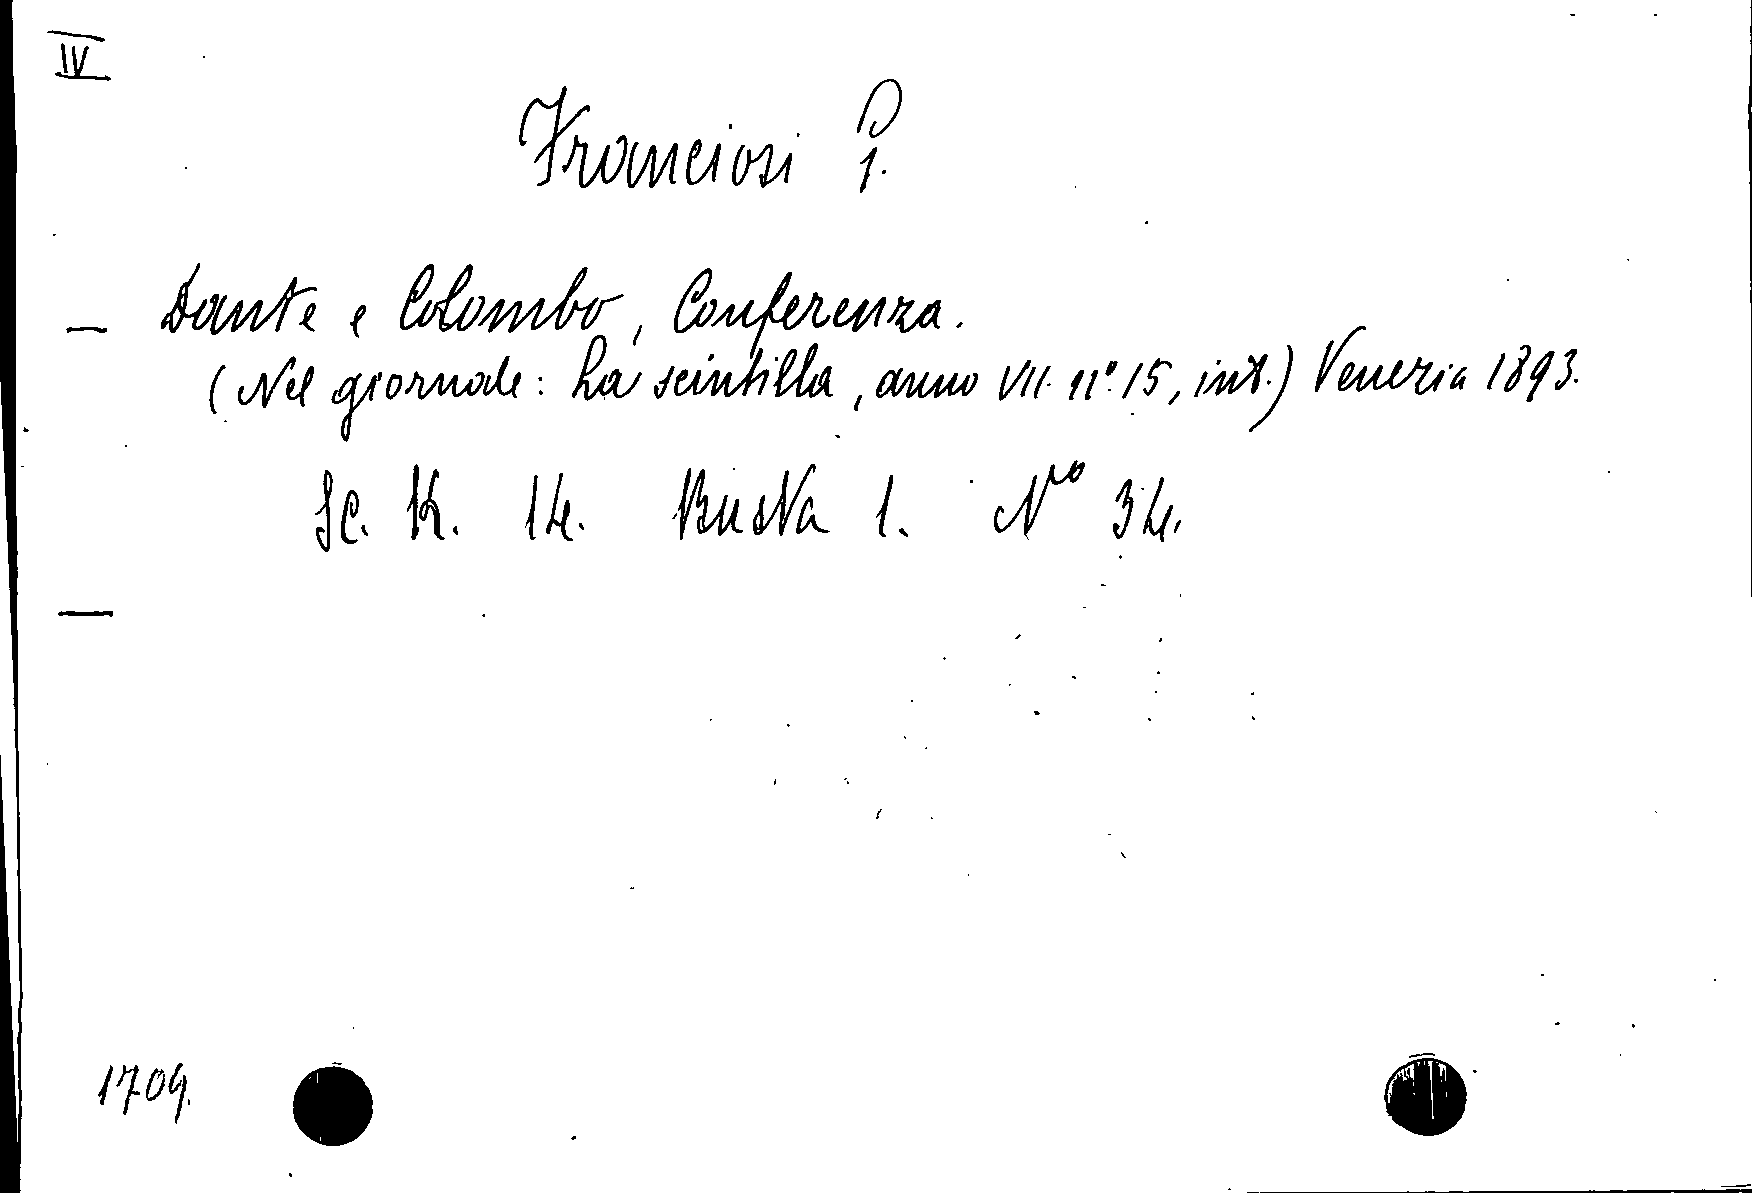 IV
Franciosi P.
— Dante e Colombo, Conferenza.
(Nel giornale: La scintilla, anno VII. n.º 15, int.) Venezia 1893.
Sc. K. 14. Busta 1. Nro 34.
—
1709.